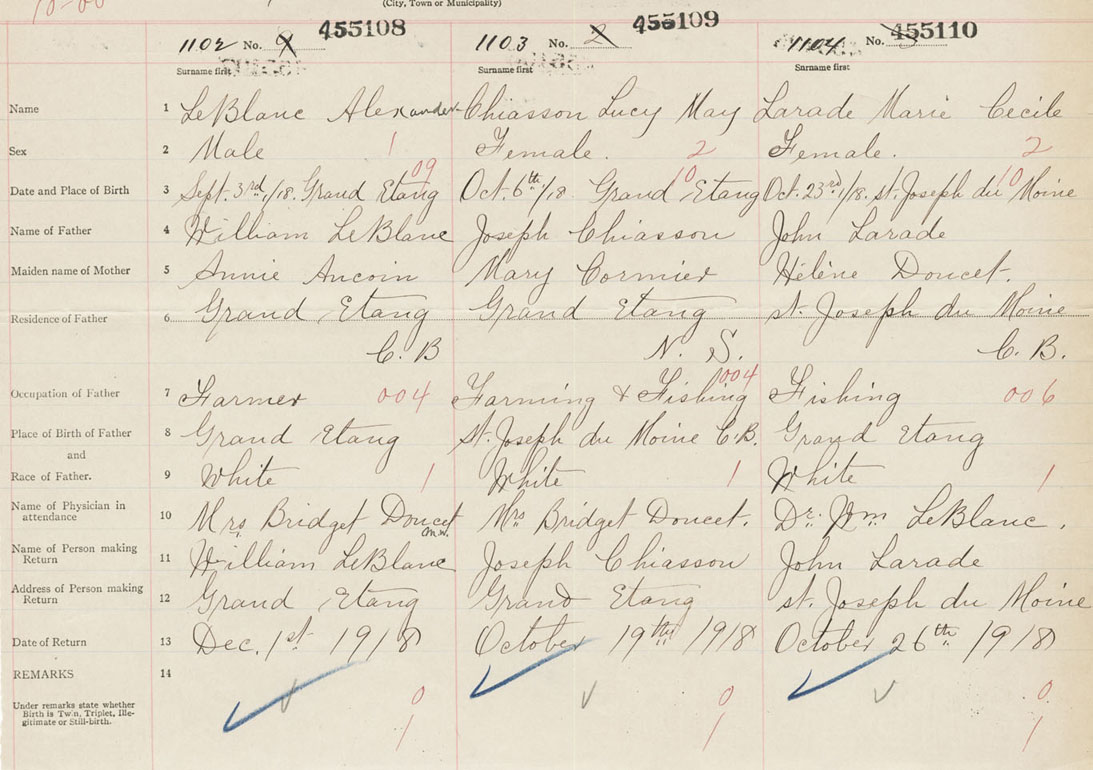 10-00
(City, Town or Municipality)
455108 455109 455110
1102 No. 9 1103 No. 2 1104 No. 3
Surname first Surname first Surname first
Name 1 LeBlanc Alexander Chiasson Lucy May Larade Marie Cecile
Sex 2 Male 1 Female. 2 Female. 2
09 10 10
Date and Place of Birth 3 Sept. 3rd/18. Grand Etang Oct. 6th/18 Grand Etang Oct. 23rd/18. St. Joseph du Moine
Name of Father 4 William LeBlanc Joseph Chiasson John Larade
Maiden name of Mother 5 Annie Aucoin Mary Cormier Hélène Doucet.
Residence of Father 6 Grand Etang Grand Etang St. Joseph du Moine
C. B N. S. C. B.
Occupation of Father 7 Farmer 004 Farming & Fishing 004 Fishing 006
Place of Birth of Father 8 Grand Etang St. Joseph du Moine C.B. Grand Etang
and
Race of Father. 9 White 1 White 1 White 1
Name of Physician in
attendance 10 Mrs Bridget Doucet Mrs Bridget Doucet. Dr. Wm LeBlanc.
m.w.
Name of Person making
Return 11 William LeBlanc Joseph Chiasson John Larade
Address of Person making
Return 12 Grand Etang Grand Etang St. Joseph du Moine
Date of Return 13 Dec. 1st 1918 October 19th 1918 October 26th 1918
REMARKS 14
Under remarks state whether 0 0 0
Birth is Twin, Triplet, Ille-
gitimate or Still-birth. 1 1 1